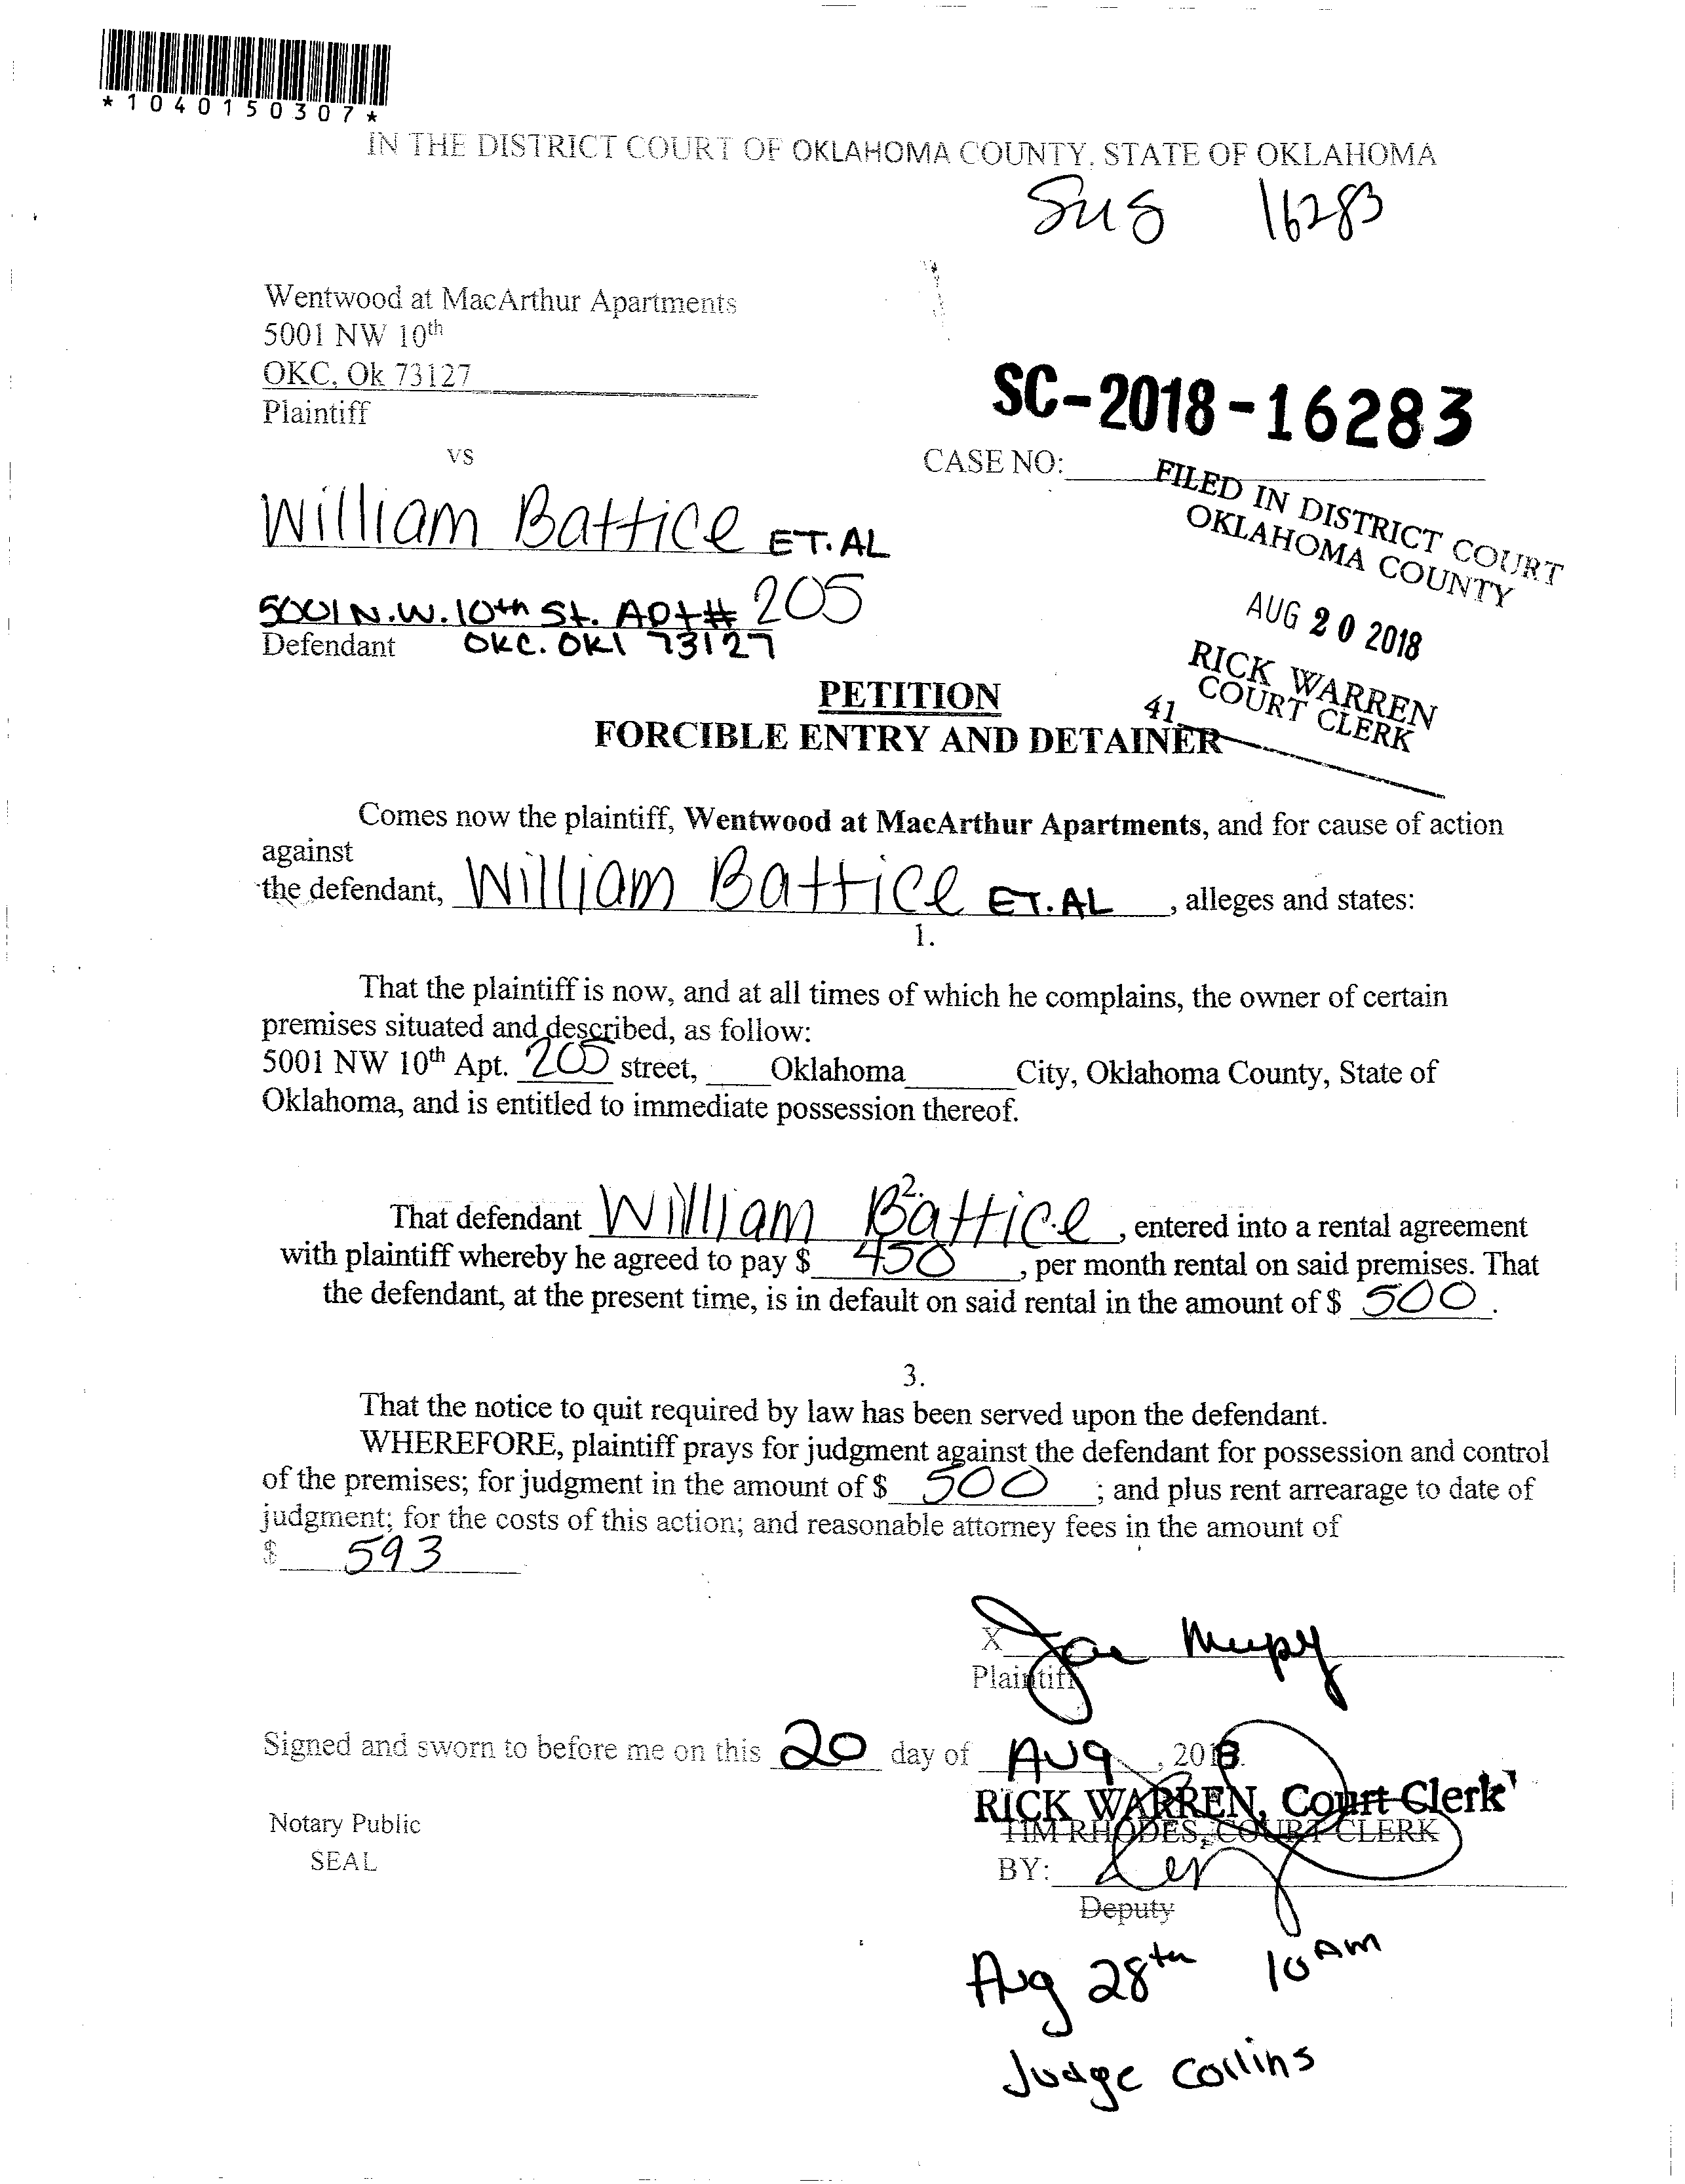 *1040150307*
IN THE DISTRICT COURT OF OKLAHOMA COUNTY, STATE OF OKLAHOMA
16283
Wentwood at MacArthur Apartments
5001 NW 10th
OKC, Ok 73127
Plaintiff
SC-2018-16283
vs
CASE NO:
FILED IN DISTRICT COURT
OKLAHOMA COUNTY
William Battice ET.AL
AUG 20 2018
5001 N.W. 10th St. Apt# 205
Defendant OKC. OKl 73127
RICK WARREN
COURT CLERK
41
PETITION
FORCIBLE ENTRY AND DETAINER
Comes now the plaintiff, Wentwood at MacArthur Apartments, and for cause of action
against
the defendant, William Battice ET.AL, alleges and states:
1.
That the plaintiff is now, and at all times of which he complains, the owner of certain
premises situated and described, as follow:
5001 NW 10th Apt. 205 street, Oklahoma City, Oklahoma County, State of
Oklahoma, and is entitled to immediate possession thereof.
2.
That defendant William Battice, entered into a rental agreement
with plaintiff whereby he agreed to pay $ 450, per month rental on said premises. That
the defendant, at the present time, is in default on said rental in the amount of $ 500.
3.
That the notice to quit required by law has been served upon the defendant.
WHEREFORE, plaintiff prays for judgment against the defendant for possession and control
of the premises; for judgment in the amount of $ 500; and plus rent arrearage to date of
judgment; for the costs of this action; and reasonable attorney fees in the amount of
$ 593
X
Plaintiff
Signed and sworn to before me on this 20 day of Aug, 2018.
RICK WARREN, Court Clerk
TIM RHODES, COURT CLERK
Notary Public
SEAL
BY:
Deputy
Aug 28th 10 AM
Judge Collins